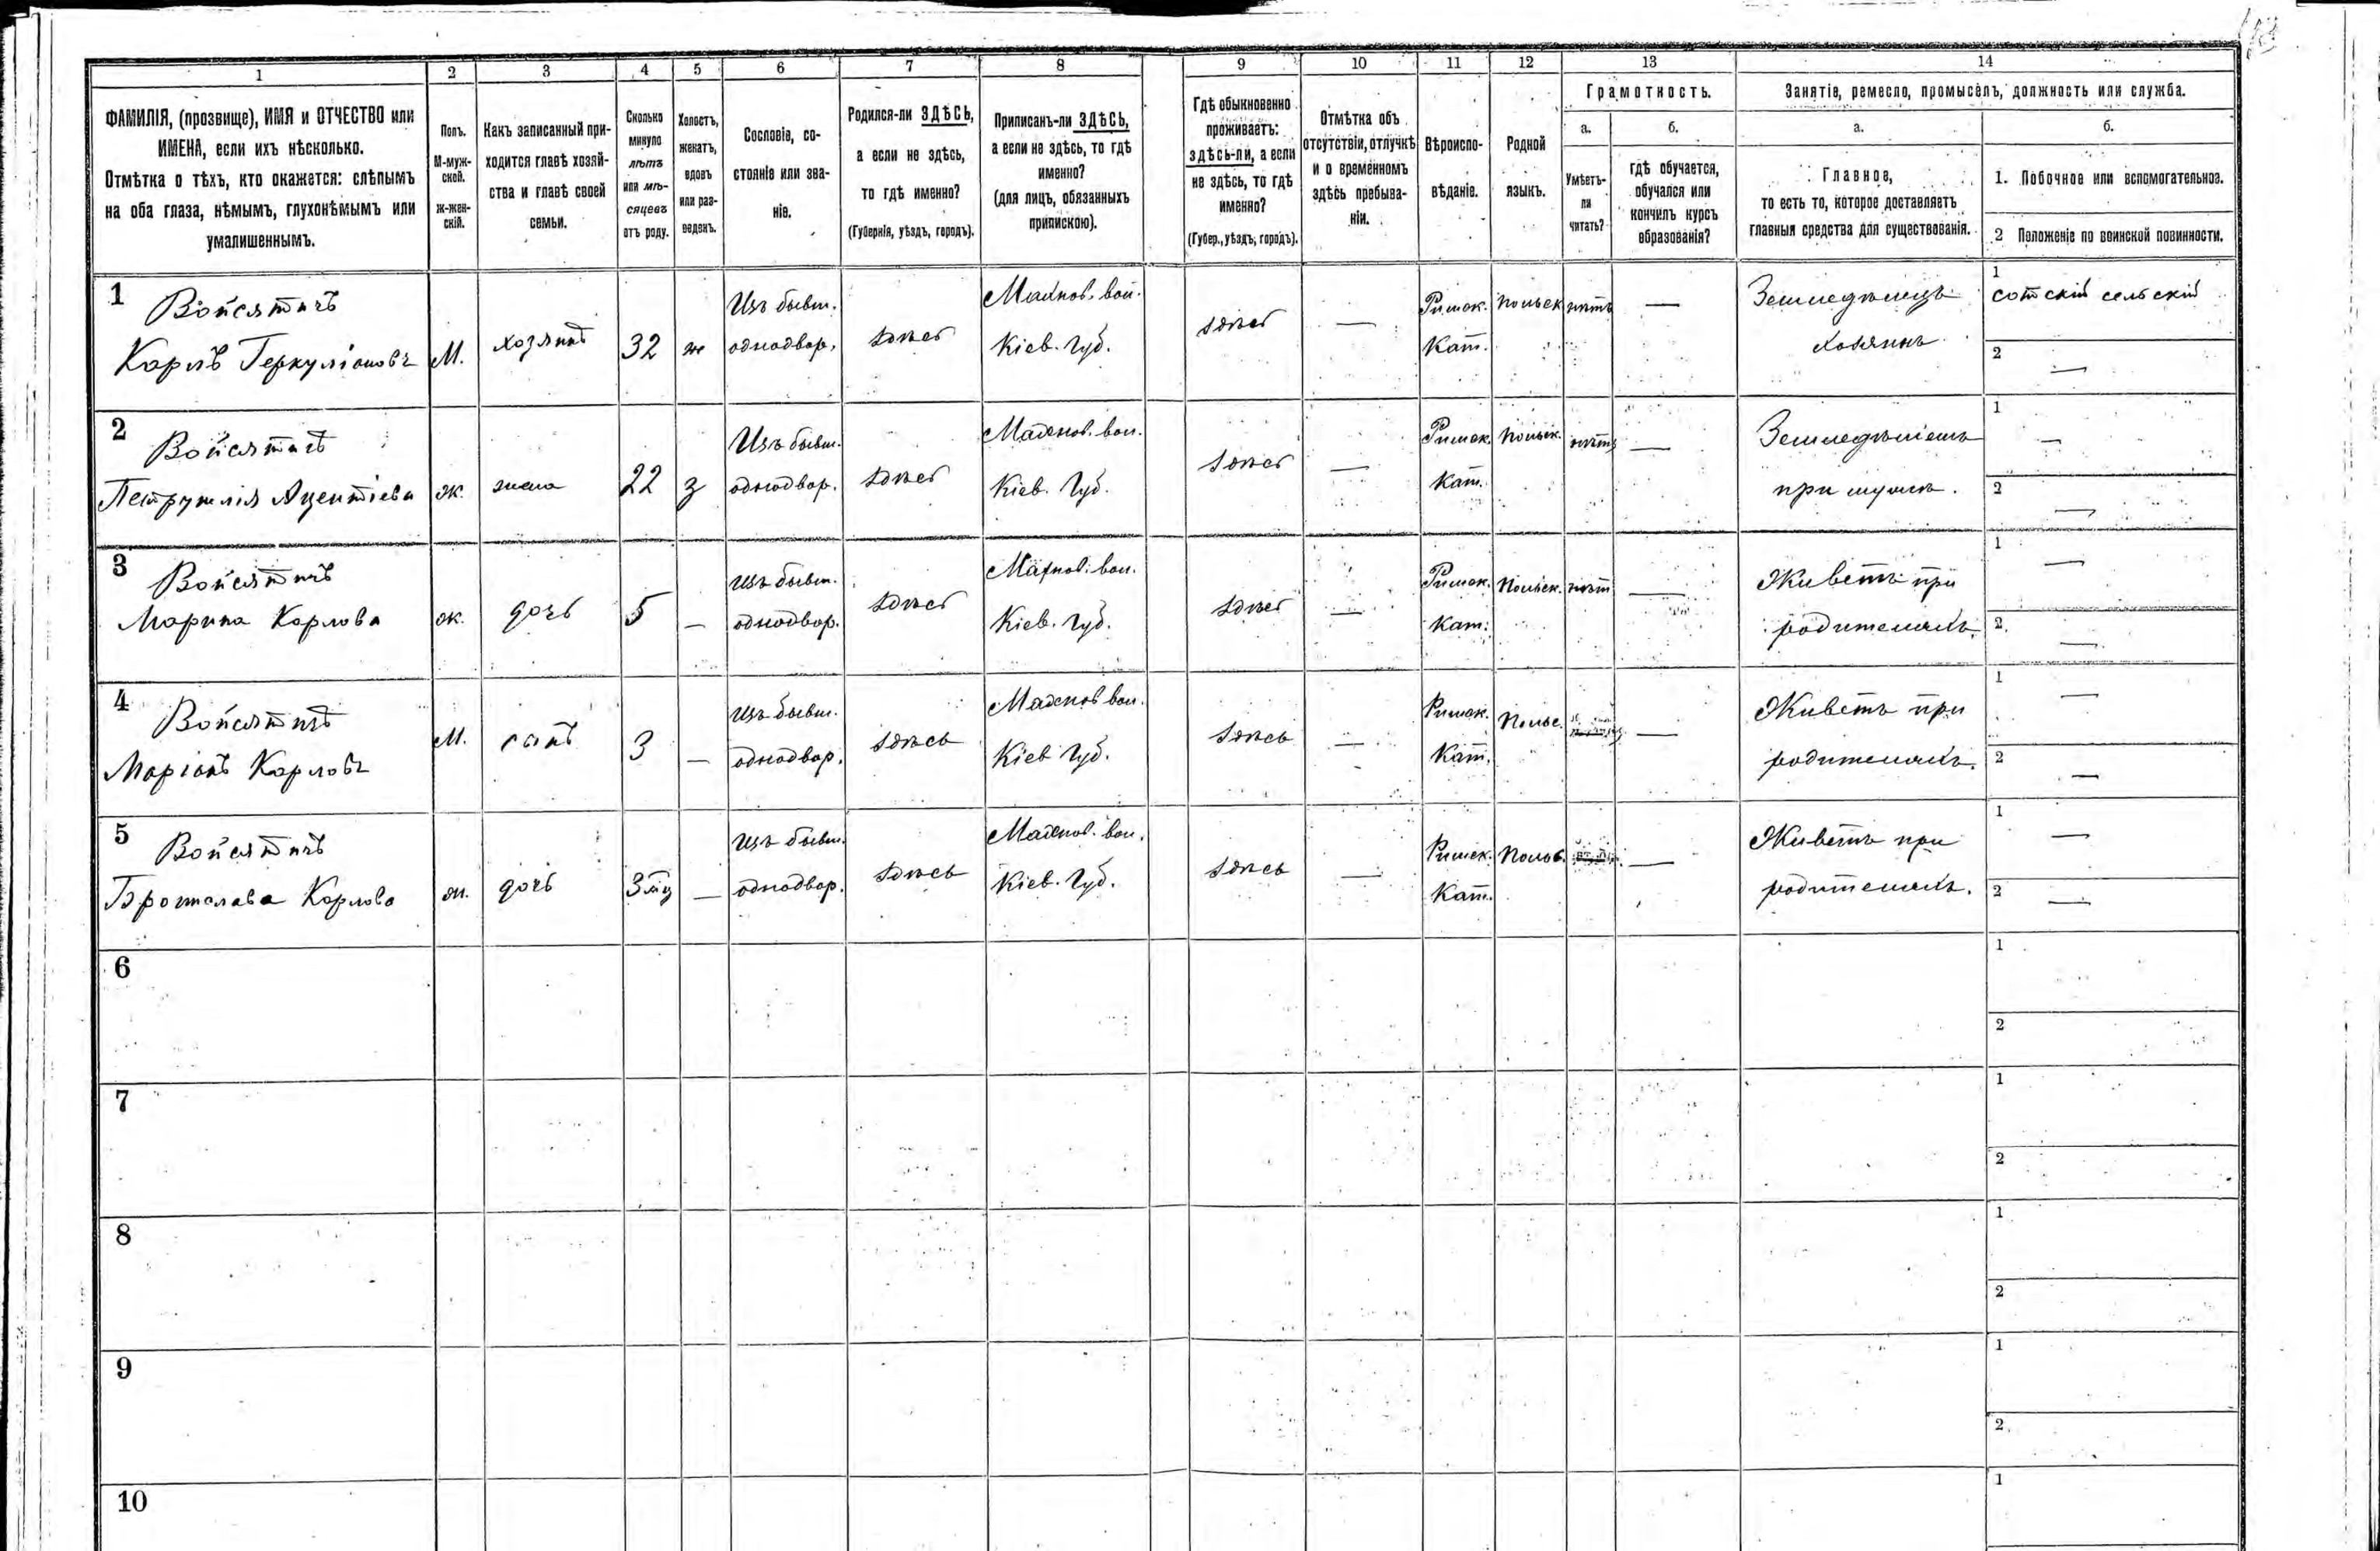 1 2 3 4 5 6 7 8 9 10 11 12 13 14
ФАМИЛІЯ, (прозвище), ИМЯ и ОТЧЕСТВО или
ИМЕНА, если ихъ нѣсколько.
Отмѣтка о тѣхъ, кто окажется: слѣпымъ
на оба глаза, нѣмымъ, глухонѣмымъ или
умалишеннымъ.
Полъ.
М-муж-
ской.
ж-жен-
скій.
Какъ записанный при-
ходится главѣ хозяй-
ства и главѣ своей
семьи.
Сколько
минуло
лѣтъ
или мѣ-
сяцевъ
отъ роду.
Холостъ,
женатъ,
вдовъ
или раз-
веденъ.
Сословіе, со-
стояніе или зва-
ніе.
Родился-ли ЗДѢСЬ,
а если не здѣсь,
то гдѣ именно?
(Губернія, уѣздъ, городъ).
Приписанъ-ли ЗДѢСЬ,
а если не здѣсь, то гдѣ
именно?
(для лицъ, обязанныхъ
припискою).
Гдѣ обыкновенно
проживаетъ:
здѣсь-ли, а если
не здѣсь, то гдѣ
именно?
(Губер., уѣздъ, городъ).
Отмѣтка объ
отсутствіи, отлучкѣ
и о временномъ
здѣсь пребыва-
ніи.
Вѣроиспо-
вѣданіе.
Родной
языкъ.
Грамотность.
а.
Умѣетъ-
ли
читать?
б.
гдѣ обучается,
обучался или
кончилъ курсъ
образованія?
Занятіе, ремесло, промыселъ, должность или служба.
а.
Главное,
то есть то, которое доставляетъ
главныя средства для существованія.
б.
1. Побочное или вспомогательное.
2 Положеніе по воинской повинности.
1 Войсятичъ
Карлъ Геркуліановъ
М.
хозяинъ
32
ж
Изъ бывш.
однодвор.
здѣсь
Махнов. вол.
Кіев. Губ.
здѣсь
—
Римск.
Кат.
Польск
нѣтъ
—
Земледѣлецъ
хозяинъ
1 сотскій сельскій
2 —
2 Войсятичъ
ж.
жена
22
з
Изъ бывш.
однодвор.
здѣсь
Махнов. вол.
Кіев. Губ.
здѣсь
—
Римск.
Кат.
Польск.
нѣтъ
—
Земледѣліемъ
при мужѣ.
1 —
2 —
3 Войсятичъ
Марина Карлова
ж.
дочь
5
—
Изъ бывш.
однодвор.
здѣсь
Махнов. вол.
Кіев. Губ.
здѣсь
—
Римск.
Кат.
Польск.
нѣт
—
Живетъ при
родителяхъ.
1 —
2 —
4 Войсятичъ
Маріанъ Карловъ
М.
сынъ
3
—
Изъ бывш.
однодвор.
здѣсь
Махнов вол.
Кіев Губ.
здѣсь
—
Римск.
Кат.
Польс.
—
Живетъ при
родителяхъ.
1 —
2 —
5 Войсятичъ
Бронислава Карлова
ж.
дочь
3 мц
—
Изъ бывш.
однодвор.
здѣсь
Махнов. вол.
Кіев. Губ.
здѣсь
—
Римск.
Кат.
Польс.
—
Живетъ при
родителяхъ.
1 —
2 —
6
1
2
7
1
2
8
1
2
9
1
2
10
1